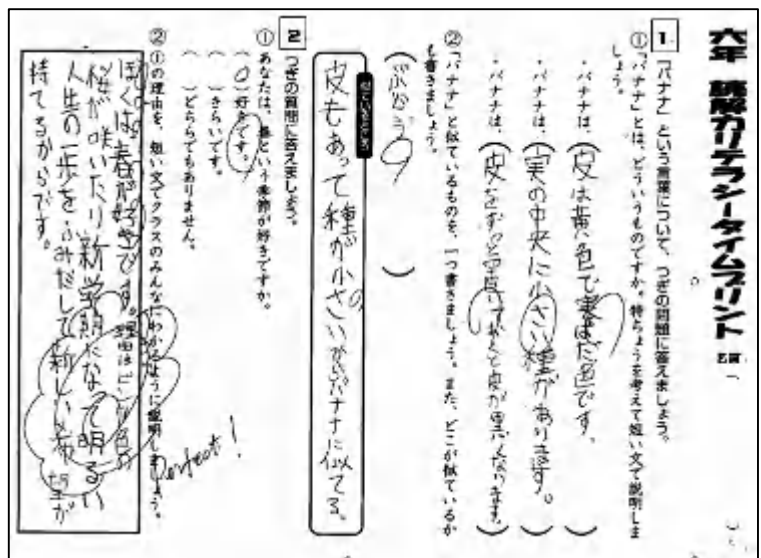 六年 読解力リテラシータイムプリント
1 「バナナ」という言葉について、つぎの問題に答えましょう。
①「バナナ」とは、どういうものですか。特ちょうを考えて短い文で説明しま
しょう。
・バナナは、(皮は黄色で実ははだ色です。)
・バナナは、(実の中央に小さい種があります。)
・バナナは、(皮をずっと置いておくと皮が黒くなります。)
②「バナナ」と似ているものを、一つ書きましょう。また、どこが似ているか
も書きましょう。
(ぶどう)
似ているところ
皮もあって種が小さいからバナナに似てる。
2 つぎの質問に答えましょう。
① あなたは、春という季節が好きですか。
(○)好きです。
( )きらいです。
( )どちらでもありません。
② ①の理由を、短い文でクラスのみんなにわかるように説明しましょう。
ぼくは春が好きです。理由はピンク色の
桜が咲いたり新学期になって明るい
人生の一歩をふみだして新しい希望が
持てるからです。
Perfect!